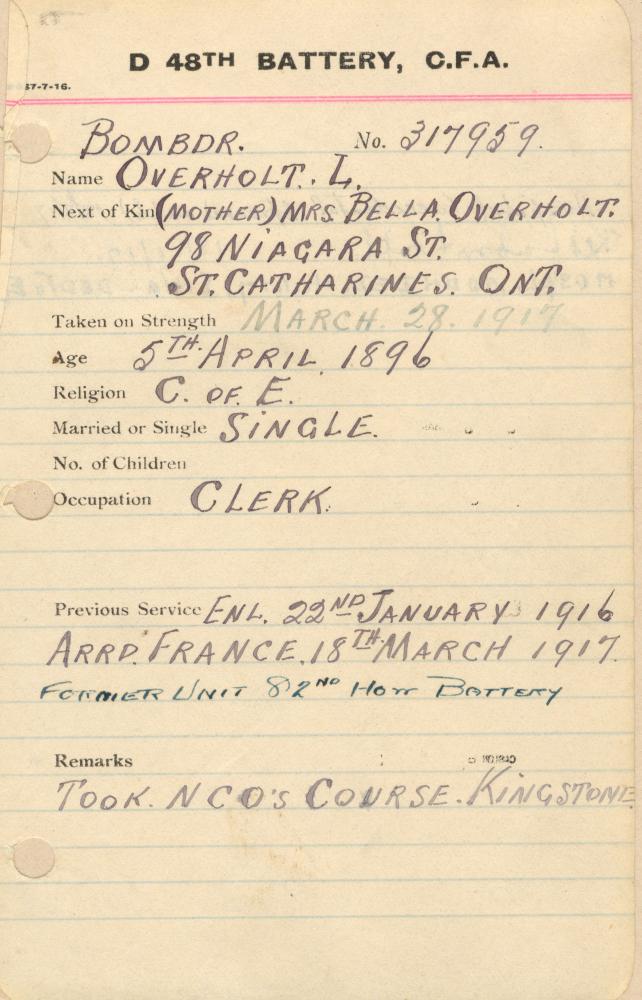 D 48TH BATTERY, C.F.A.
57-7-16.
BOMBDR. No. 317959.
Name OVERHOLT. L.
Next of Kin (MOTHER) MRS BELLA. OVERHOLT.
98 NIAGARA ST.
ST. CATHARINES. ONT.
Taken on Strength MARCH. 28. 1917
Age 5TH. APRIL. 1896
Religion C. OF E.
Married or Single SINGLE.
No. of Children
Occupation CLERK.
Previous Service ENL. 22ND JANUARY 1916
ARRD. FRANCE. 18TH. MARCH 1917.
FORMER UNIT 82ND HOW BATTERY
Remarks
TOOK. NCO'S COURSE. KINGSTONE